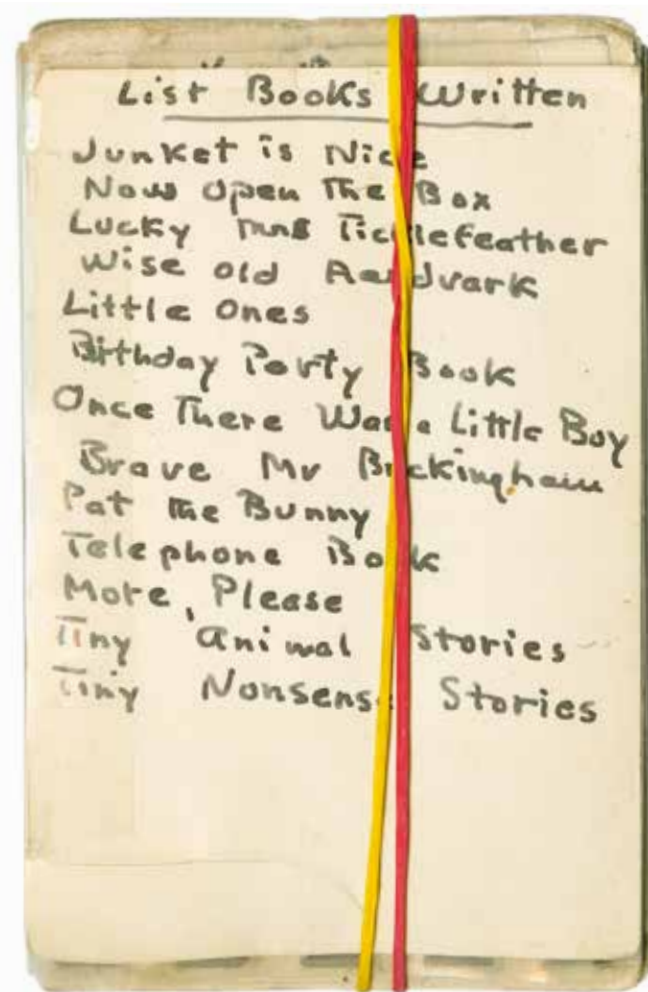 List Books Written
Junket is Nice
Now Open The Box
Lucky Mrs Ticklefeather
Wise old Aardvark
Little Ones
Birthday Party Book
Once There Was a Little Boy
Brave Mr Buckingham
Pat the Bunny
Telephone Book
More, Please
Tiny Animal Stories
Tiny Nonsense Stories